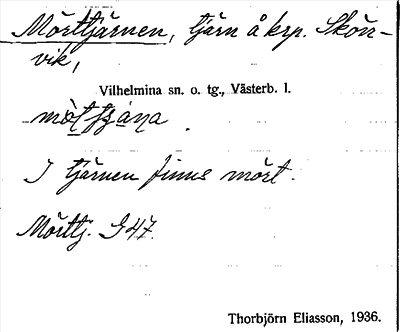 Mörttjärnen, tjärn å krp. Skön-
vik,
Vilhelmina sn. o. tg., Västerb. l.
I tjärnen finns mört.
Mörttj. G 47.
Thorbjörn Eliasson, 1936.